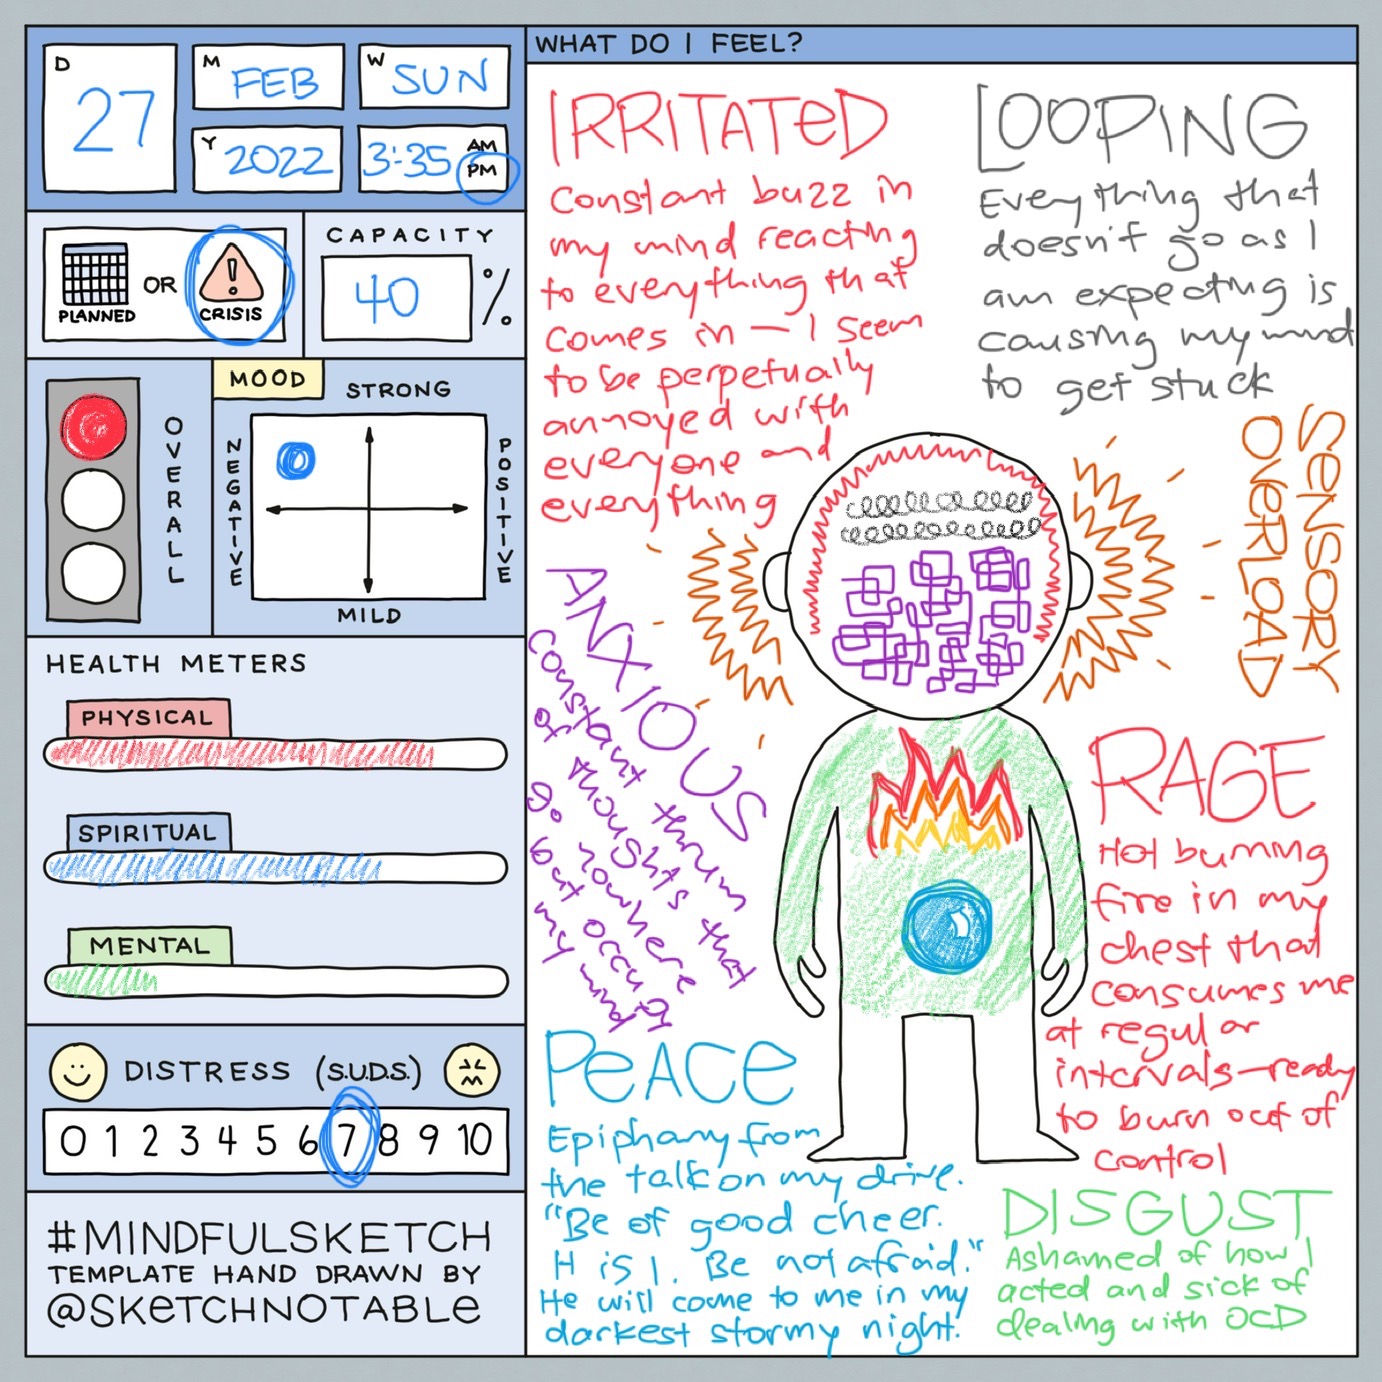 D
27
M
FEB
W
SUN
Y
2022
3:35
AM
PM
PLANNED
OR
CRISIS
CAPACITY
40 %
OVERALL
MOOD
STRONG
NEGATIVE
POSITIVE
MILD
HEALTH METERS
PHYSICAL
SPIRITUAL
MENTAL
DISTRESS (S.U.D.S.)
0 1 2 3 4 5 6 7 8 9 10
#MINDFULSKETCH
TEMPLATE HAND DRAWN BY
@SKETCHNOTABLE
WHAT DO I FEEL?
IRRITATED
Constant buzz in
my mind reacting
to everything that
comes in — I seem
to be perpetually
annoyed with
everyone and
everything
LOOPING
Everything that
doesn't go as I
am expecting is
causing my mind
to get stuck
SENSORY
OVERLOAD
ANXIOUS
Constant thrum
of thoughts that
go nowhere
but occupy
my mind
RAGE
Hot burning
fire in my
chest that
consumes me
at regular
intervals—ready
to burn out of
control
PEACE
Epiphany from
the talk on my drive.
"Be of good cheer.
It is I. Be not afraid."
He will come to me in my
darkest stormy night.
DISGUST
Ashamed of how I
acted and sick of
dealing with OCD